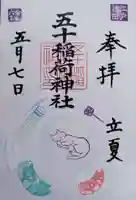 奉拝
立夏
五十稲荷神社
五月七日